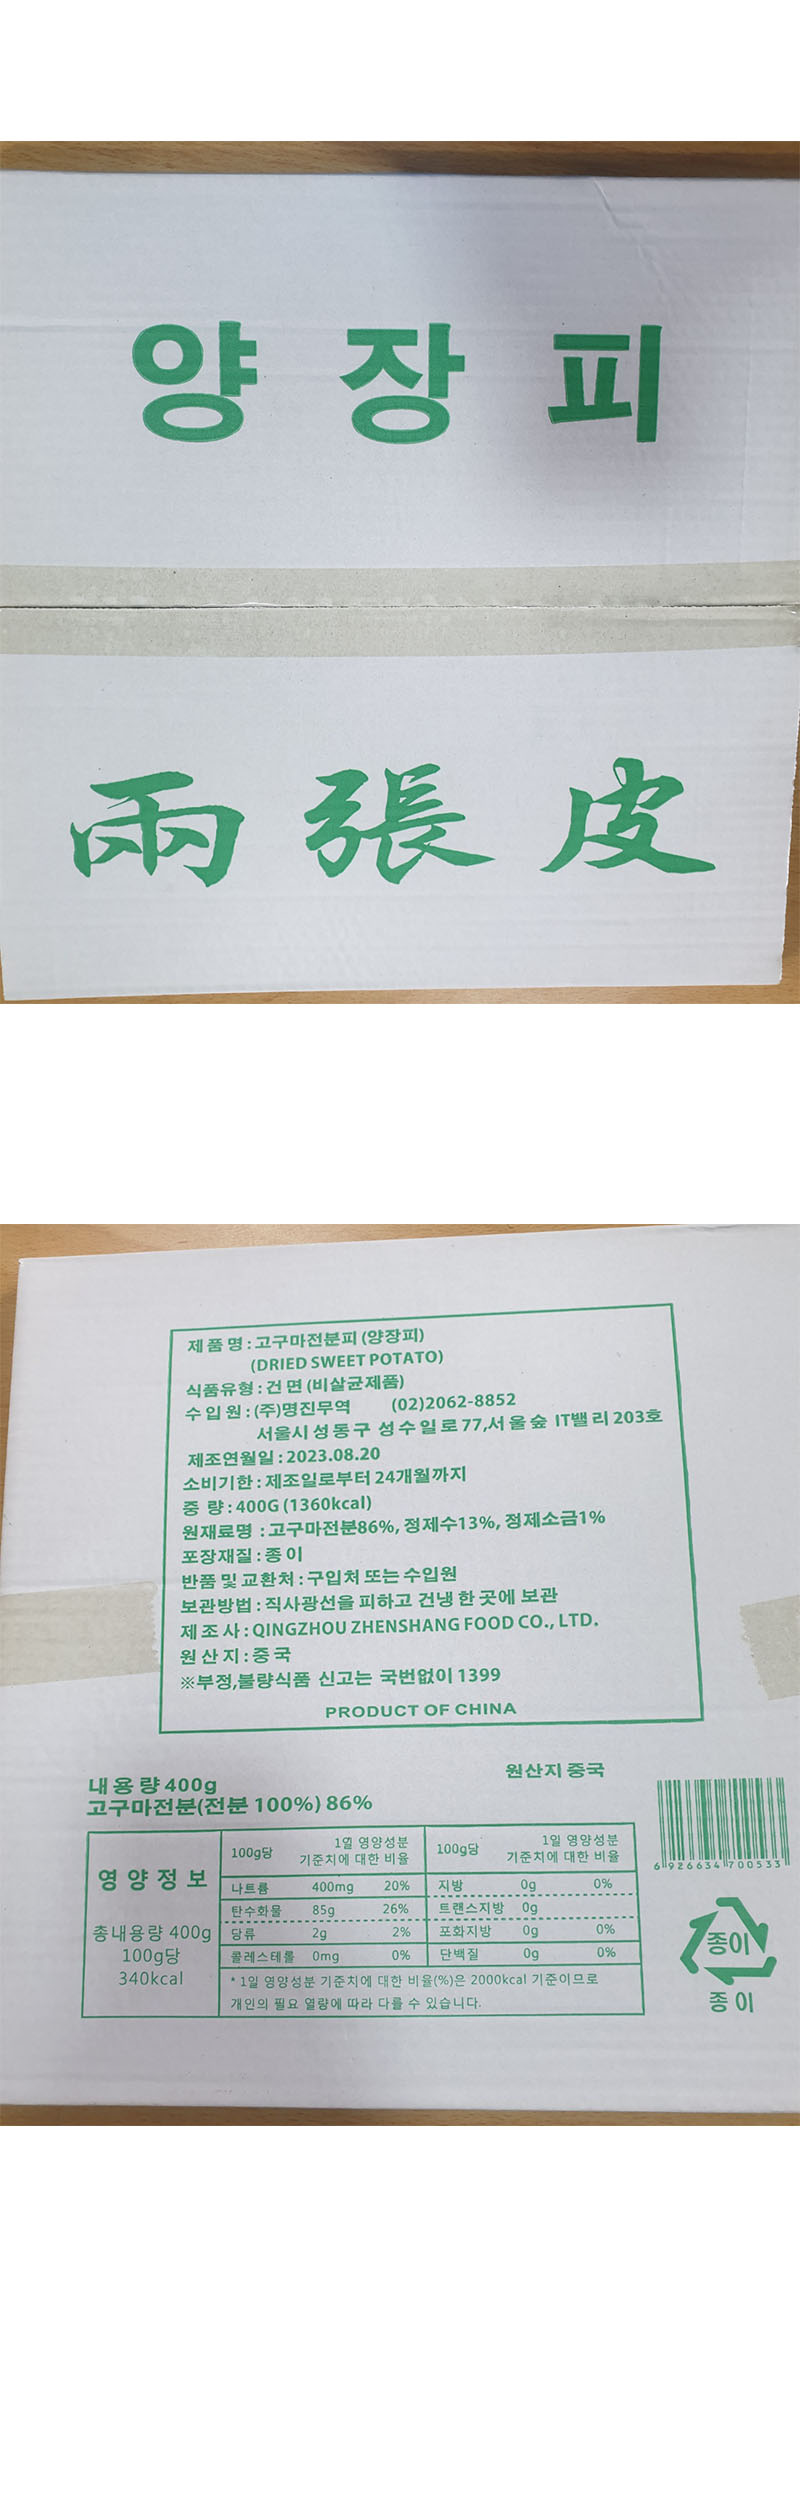 양장피
兩張皮
제품명 : 고구마전분피 (양장피)
(DRIED SWEET POTATO)
식품유형 : 건면 (비살균제품)
수입원 : (주)명진무역 (02)2062-8852
서울시 성동구 성수일로 77,서울숲 IT밸리 203호
제조연월일 : 2023.08.20
소비기한 : 제조일로부터 24개월까지
중 량 : 400G (1360kcal)
원재료명 : 고구마전분86%, 정제수13%, 정제소금1%
포장재질 : 종이
반품 및 교환처 : 구입처 또는 수입원
보관방법 : 직사광선을 피하고 건냉한 곳에 보관
제조사 : QINGZHOU ZHENSHANG FOOD CO., LTD.
원산지 : 중국
※부정,불량식품 신고는 국번없이 1399
PRODUCT OF CHINA
원산지 중국
내용량 400g
고구마전분(전분 100%) 86%
영양정보
총내용량 400g
100g당
340kcal
100g당 1일 영양성분 기준치에 대한 비율 100g당 1일 영양성분 기준치에 대한 비율
나트륨 400mg 20% 지방 0g 0%
탄수화물 85g 26% 트랜스지방 0g
당류 2g 2% 포화지방 0g 0%
콜레스테롤 0mg 0% 단백질 0g 0%
* 1일 영양성분 기준치에 대한 비율(%)은 2000kcal 기준이므로
개인의 필요 열량에 따라 다를 수 있습니다.
6 926634 700533
종이
종이